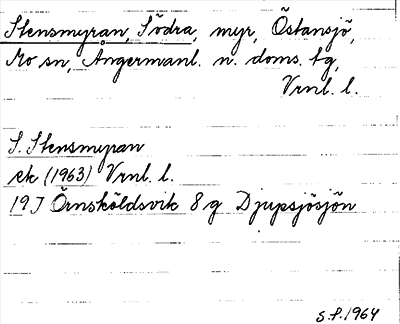 Stensmyran, Södra, myr, Östansjö,
Mo sn, Ångermanl. n. doms. tg,
Vrnl. l.
S. Stensmyran
ek (1963) Vrnl. l.
19J Örnsköldsvik 8 g Djupsjösjön
S.P. 1964